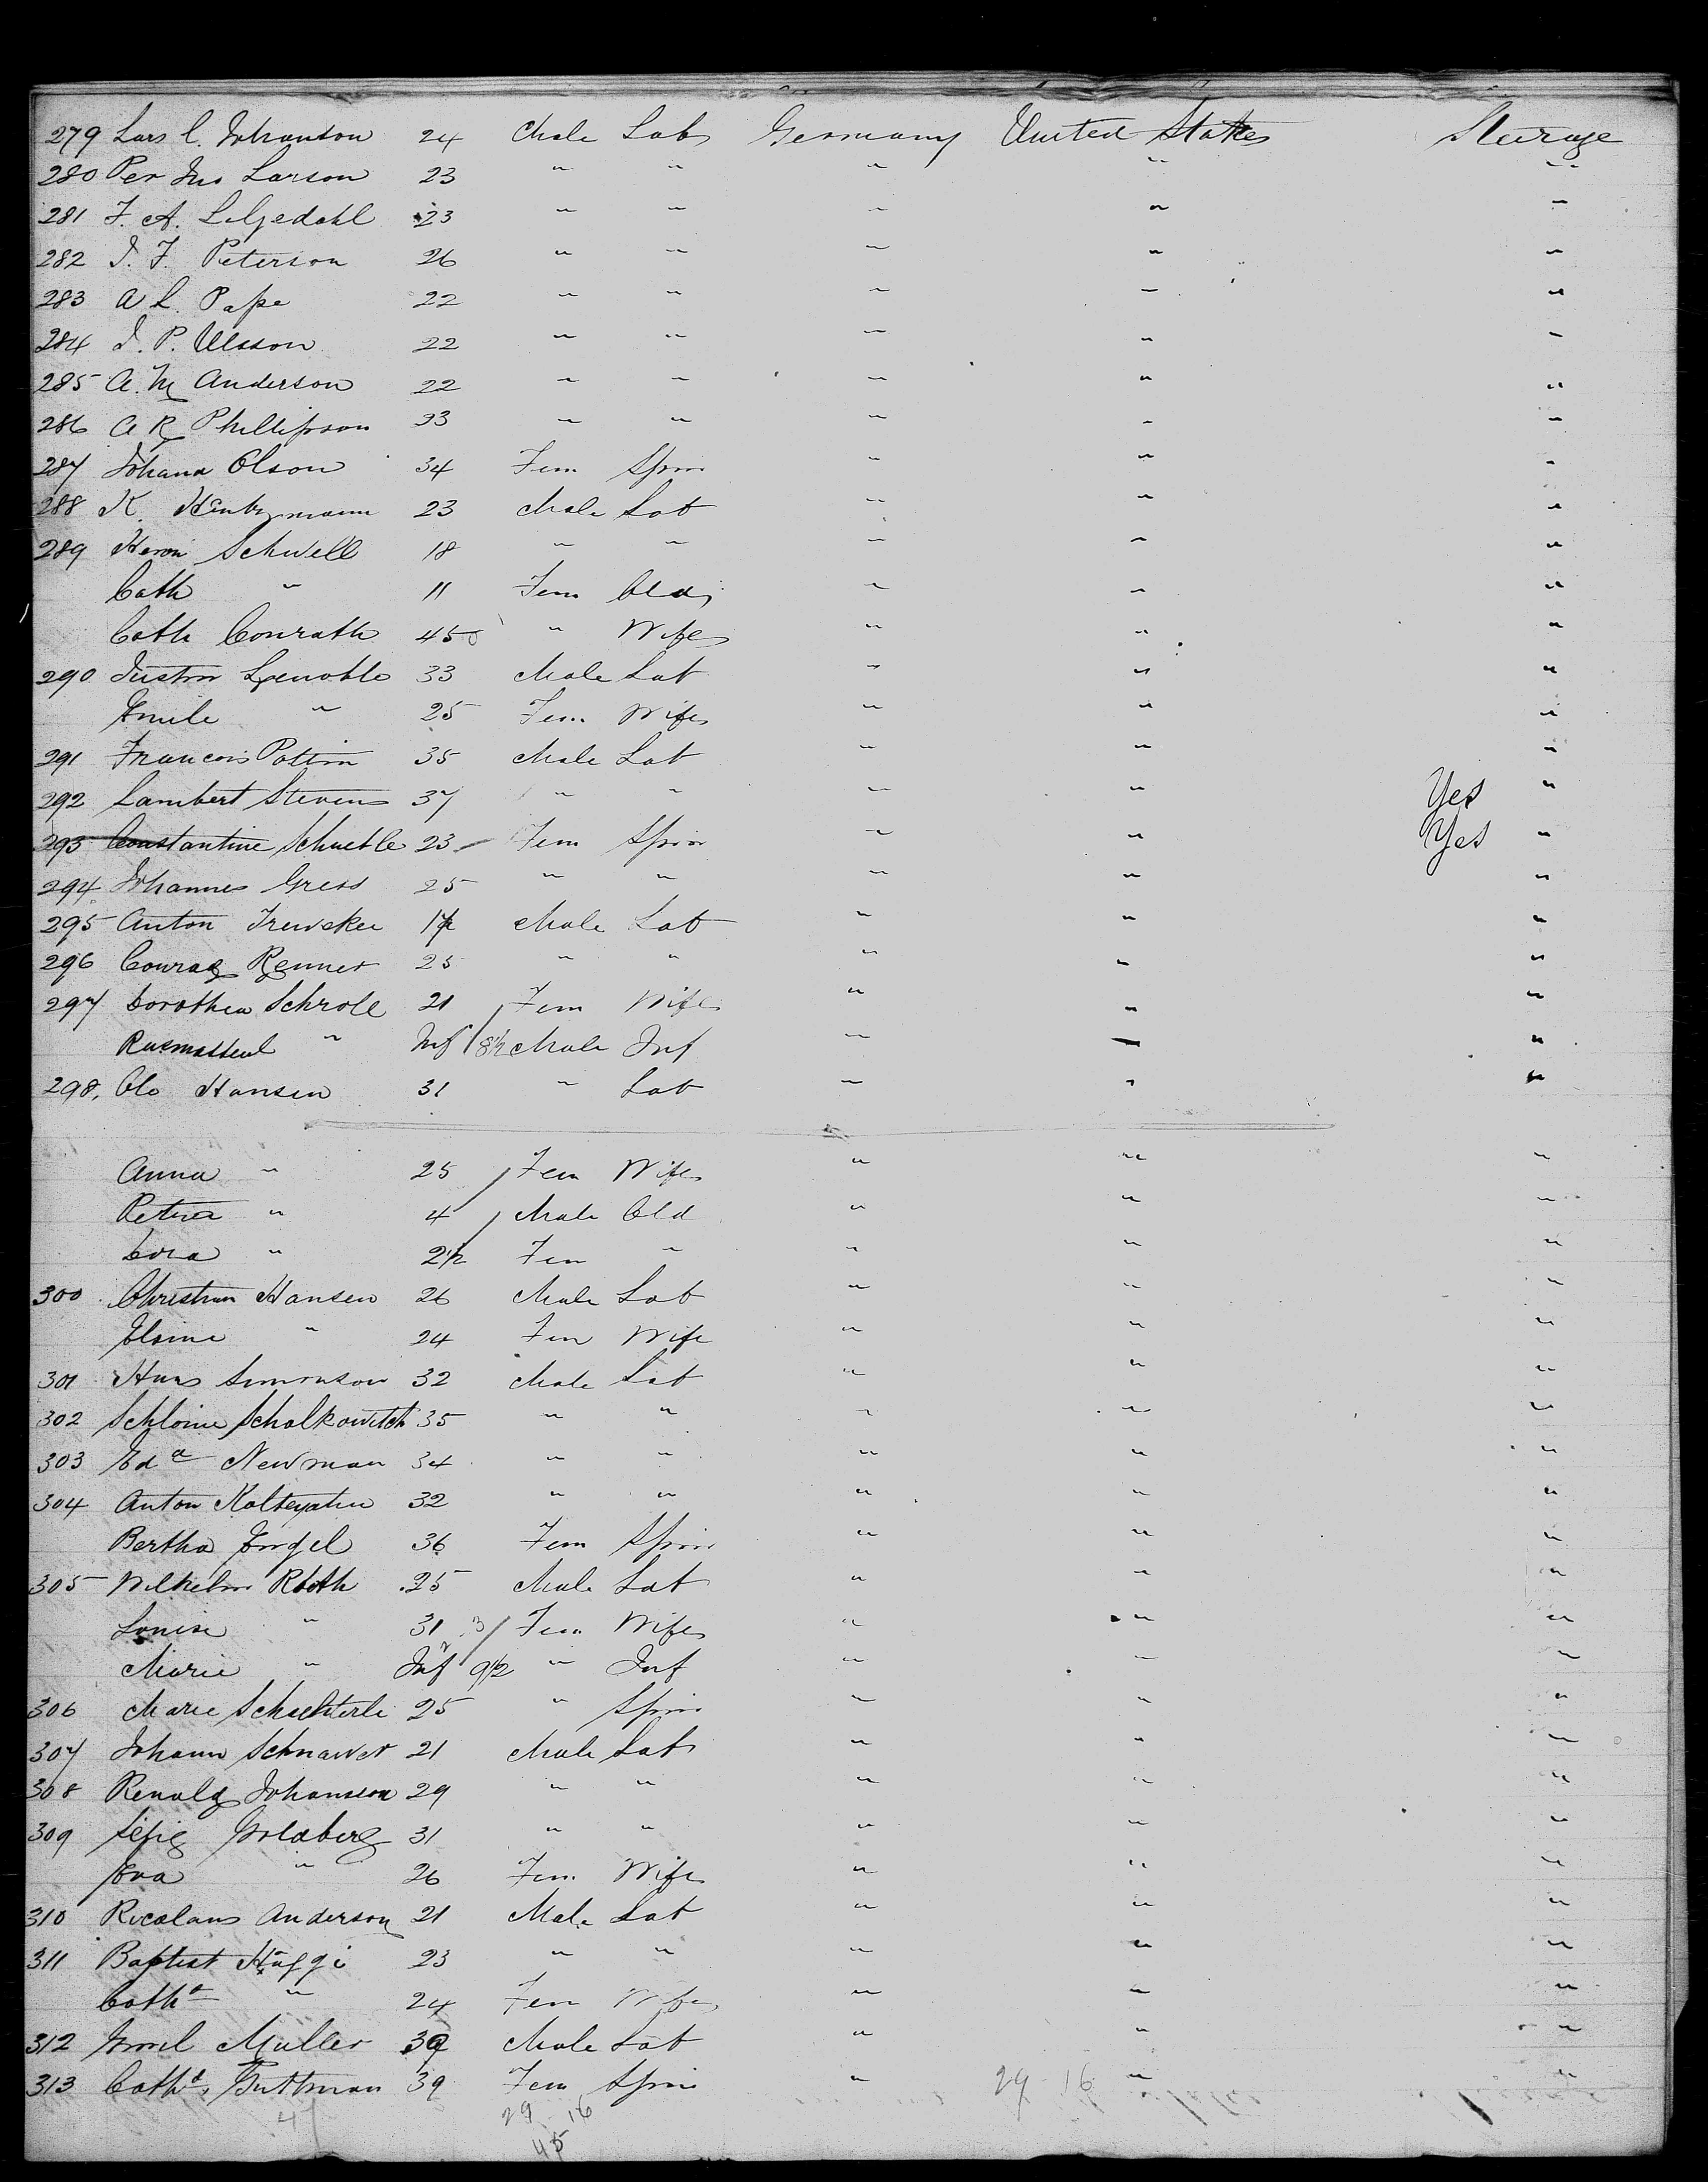 279 Lars C. Johanson 24 Male Lab Germany United States Steerage
280 Per Jno Larson 23 " " " " "
281 F. A. Liljedahl 23 " " " " "
282 J. F. Peterson 26 " " " " "
283 A L. Pape 22 " " " " "
284 J. P. Olsson 22 " " " " "
285 A. M Anderson 22 " " " " "
286 A R Phillipson 33 " " " " "
287 Johana Olson 34 Fem Spin " " "
288 K. 23 Male Lab " " "
289 Schwell 18 " " " " "
Cath " 11 Fem Cld " " "
Cath Conrath 45 " Wife " " "
290 Lenoble 33 Male Lab " " "
Emile " 25 Fem Wife " " "
291 Francois Pottin 35 Male Lab " " "
292 Lambert Stevens 37 " " " " Yes "
293 Constantine Schueble 23 Fem Spin " " Yes "
294 Johannes Gress 25 " " " " "
295 Anton 17 Male Lab " " "
296 Conrad Renner 25 " " " " "
297 Dorothea Schroll 21 Fem Wife " " "
" Inf 8/12 Male Inf " " "
298. Ole Hansen 31 " Lab " " "
Anna " 25 Fem Wife " " "
Peter " 4 Male Cld " " "
Cora " 2 1/2 Fem " " " "
300 Christian Hansen 26 Male Lab " " "
Elsine " 24 Fem Wife " " "
301 Hans Simonson 32 Male Lab " " "
302 Schloime Schalkowitch 35 " " " " "
303 Edd Newman 34 " " " " "
304 Anton 32 " " " " "
Bertha Engel 36 Fem Spin " " "
305 Wilhelm Roth 25 Male Lab " " "
Louise " 31 Fem Wife " " "
Marie " Inf 9/12 " Inf " " "
306 Marie Schachterle 25 " Spin " " "
307 Johann Schnawer 21 Male Lab " " "
308 Renald Johansson 29 " " " " "
309 Goldberg 31 " " " " "
Eva " 26 Fem Wife " " "
310 Anderson 21 Male Lab " " "
311 Baptist Häggi 23 " " " " "
Catha " 24 Fem Wife " " "
312 Muller 39 Male Lab " " "
313 Catha Guttman 39 Fem Spin " 29 16 " "
47 29 16
45